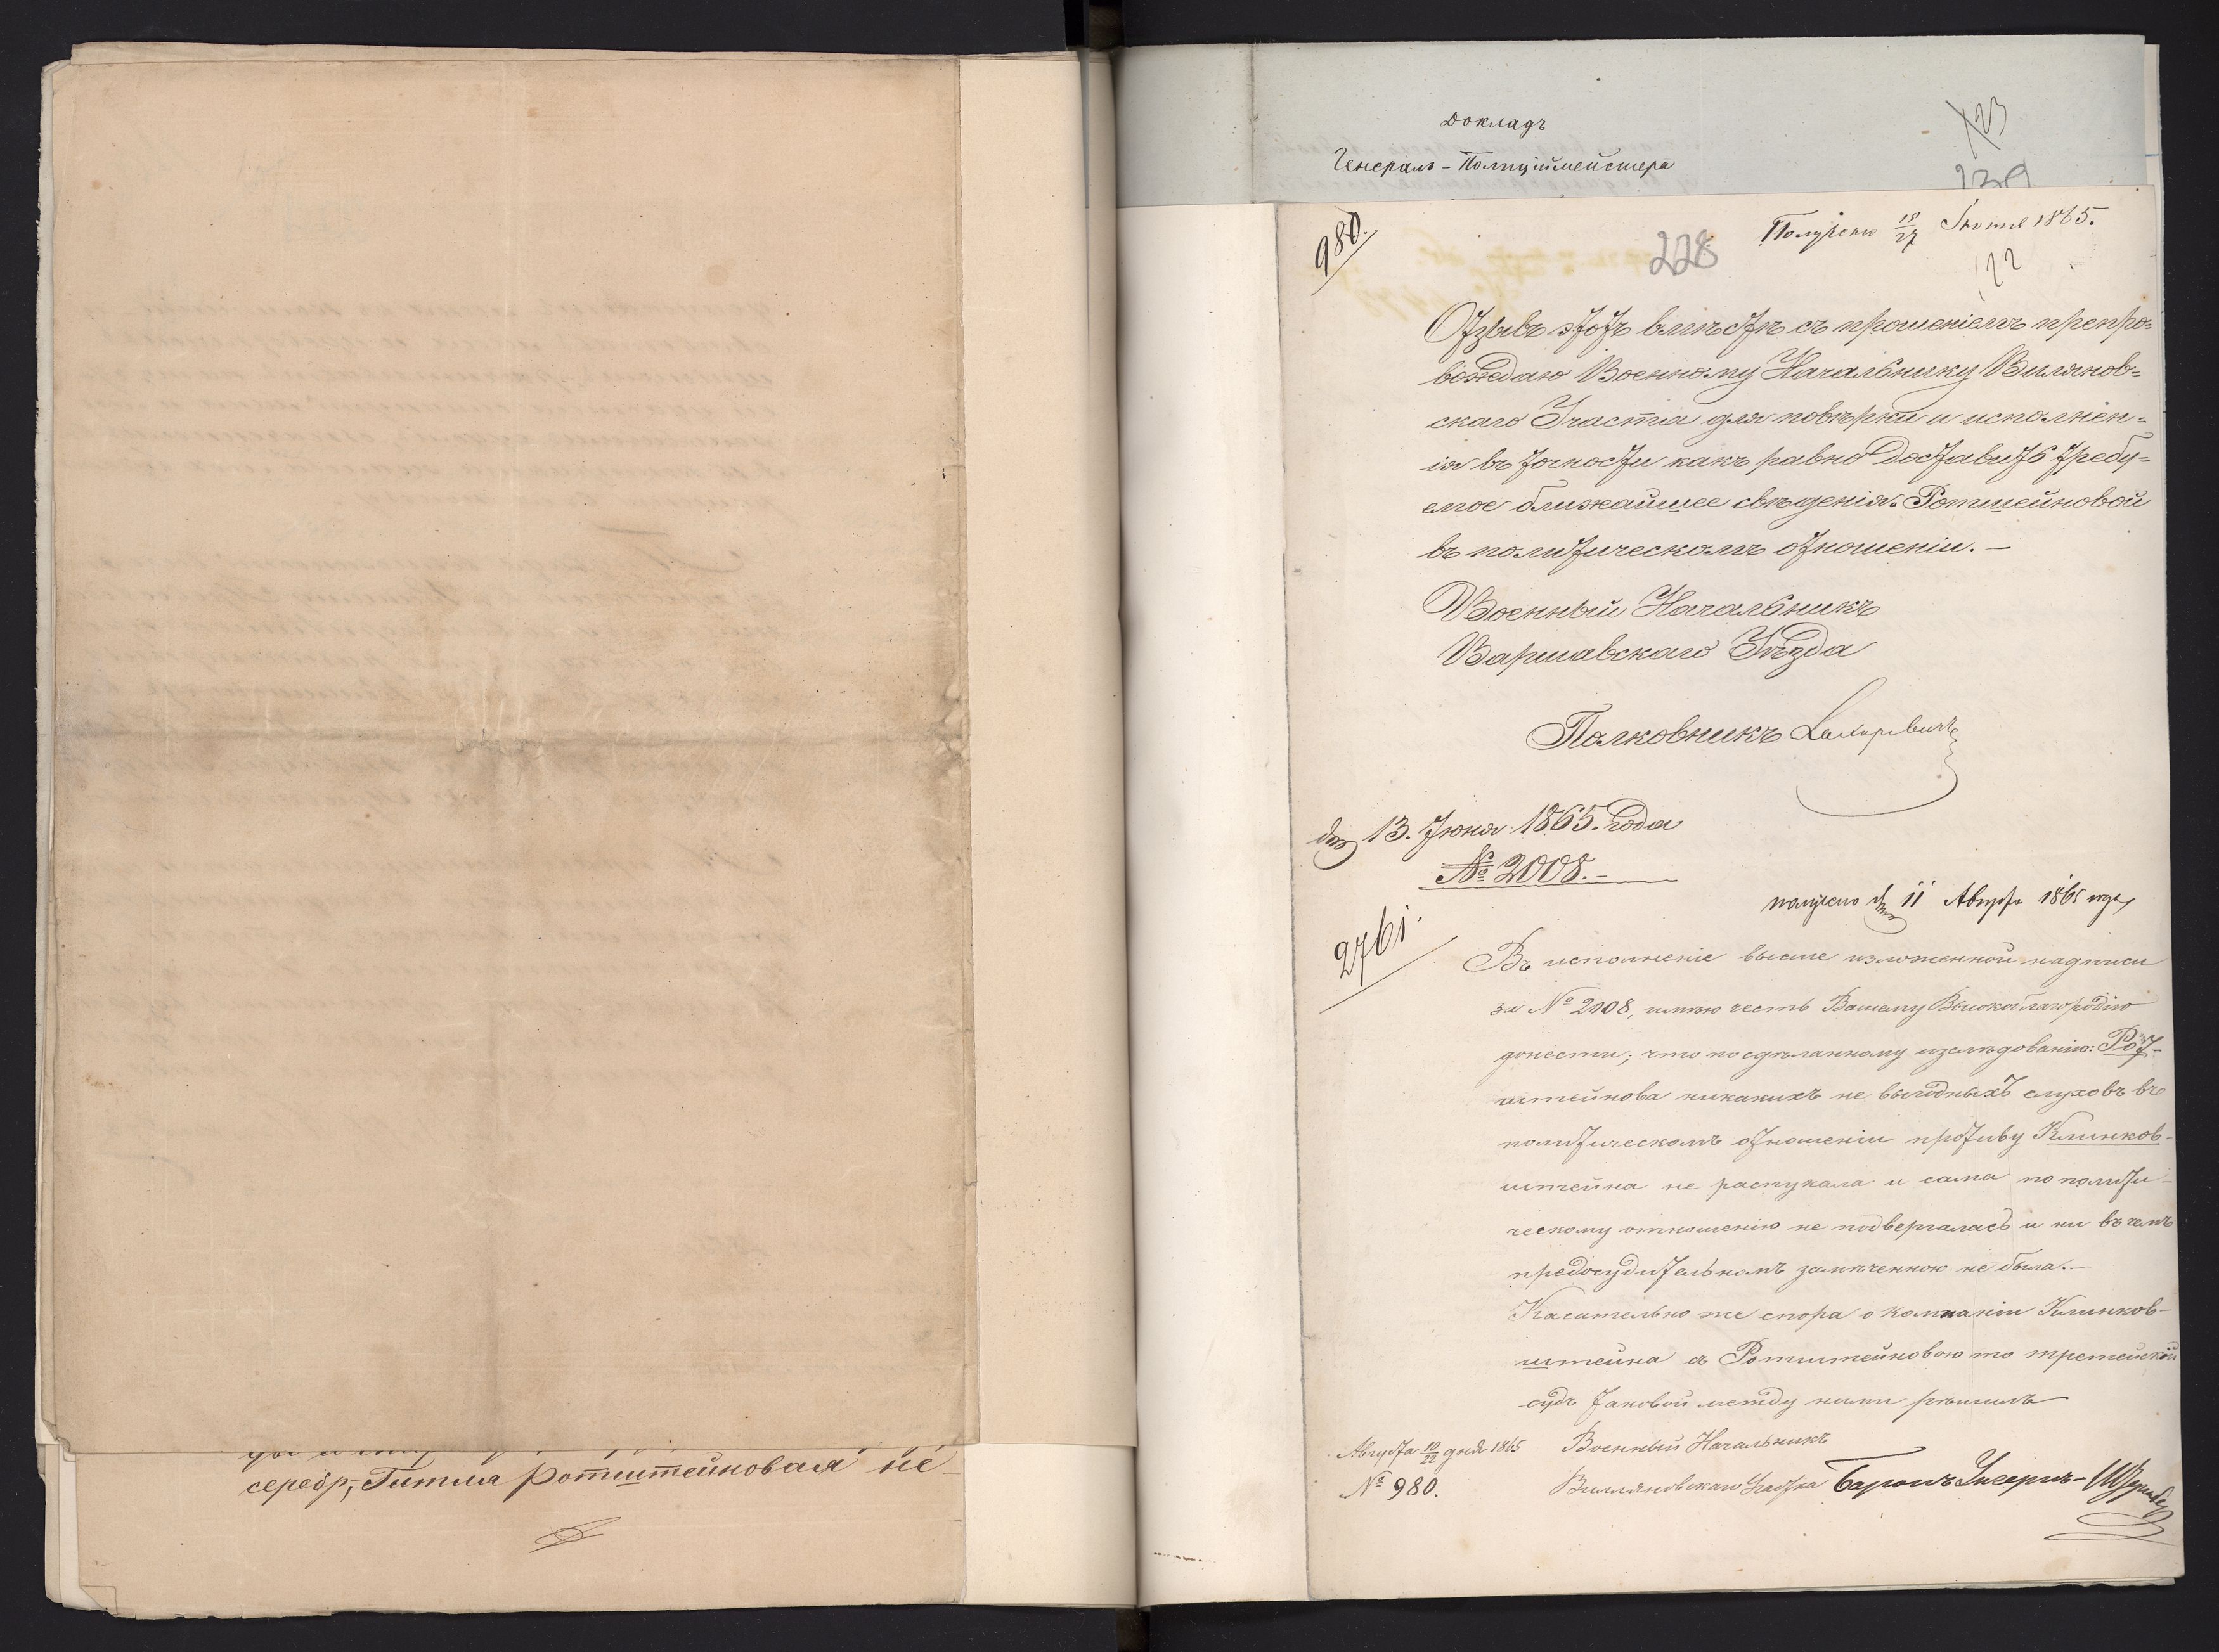 серебр, Гитля Ротштейновая не
Докладъ
Генералъ-Полиціймейстера
123
239
980.
228
Получено 15/27 Іюня 1865.
122
Отзывъ этотъ вмѣстѣ съ прошеніемъ препро=
вождаю Военному Начальнику Виланов=
скаго Участка для повѣрки и исполнен=
ія въ точности какъ равно доставить требу=
емое ближайшее свѣденія Ротшейновой
въ политическомъ отношеніи.—
Военный Начальникъ
Варшавскаго Уѣзда
Полковникъ
13. Іюня 1865. года
№ 2008.—
получено 11 Августа 1865 года
2761.
Въ исполненіе выше изложенной надписи
за № 2008, имѣю честь Вашему Высокоблагородію
донести; что по сдѣланному изслѣдованію: Рот-
штейнова никакихъ не выгодныхъ слуховъ въ
политическомъ отношеніи противу Клинков-
штейна не распукала и сама по полити-
ческому отношенію не подвергалась и ни въ чемъ
предосудительномъ замѣченною не была.—
Касательно же спора о компаніи Клинков-
штейна съ Ротштейновою то третейскій
судъ таковой между ними рѣшилъ
Августа 10/22 дня 1865 Военный Начальникъ
№ 980. Вилляновскаго Участка Баронъ Унгернъ-Штернбергъ